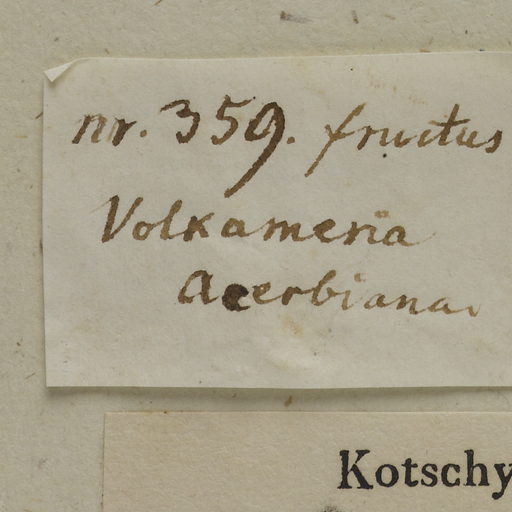 nr. 359. fructus
Volkameria
Acerbiana
Kotschy